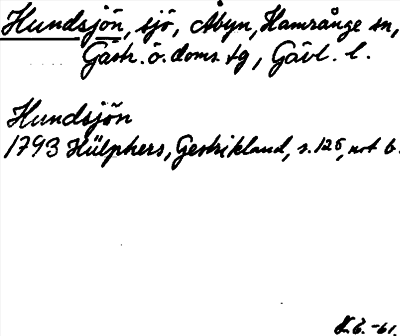 Hundsjön, sjö, Åbyn, Hamrånge sn,
Gästr. ö. doms. tg, Gävl. l.
Hundsjön
1793 Hülphers, Gestrikland, s. 125, not 6.
-61.